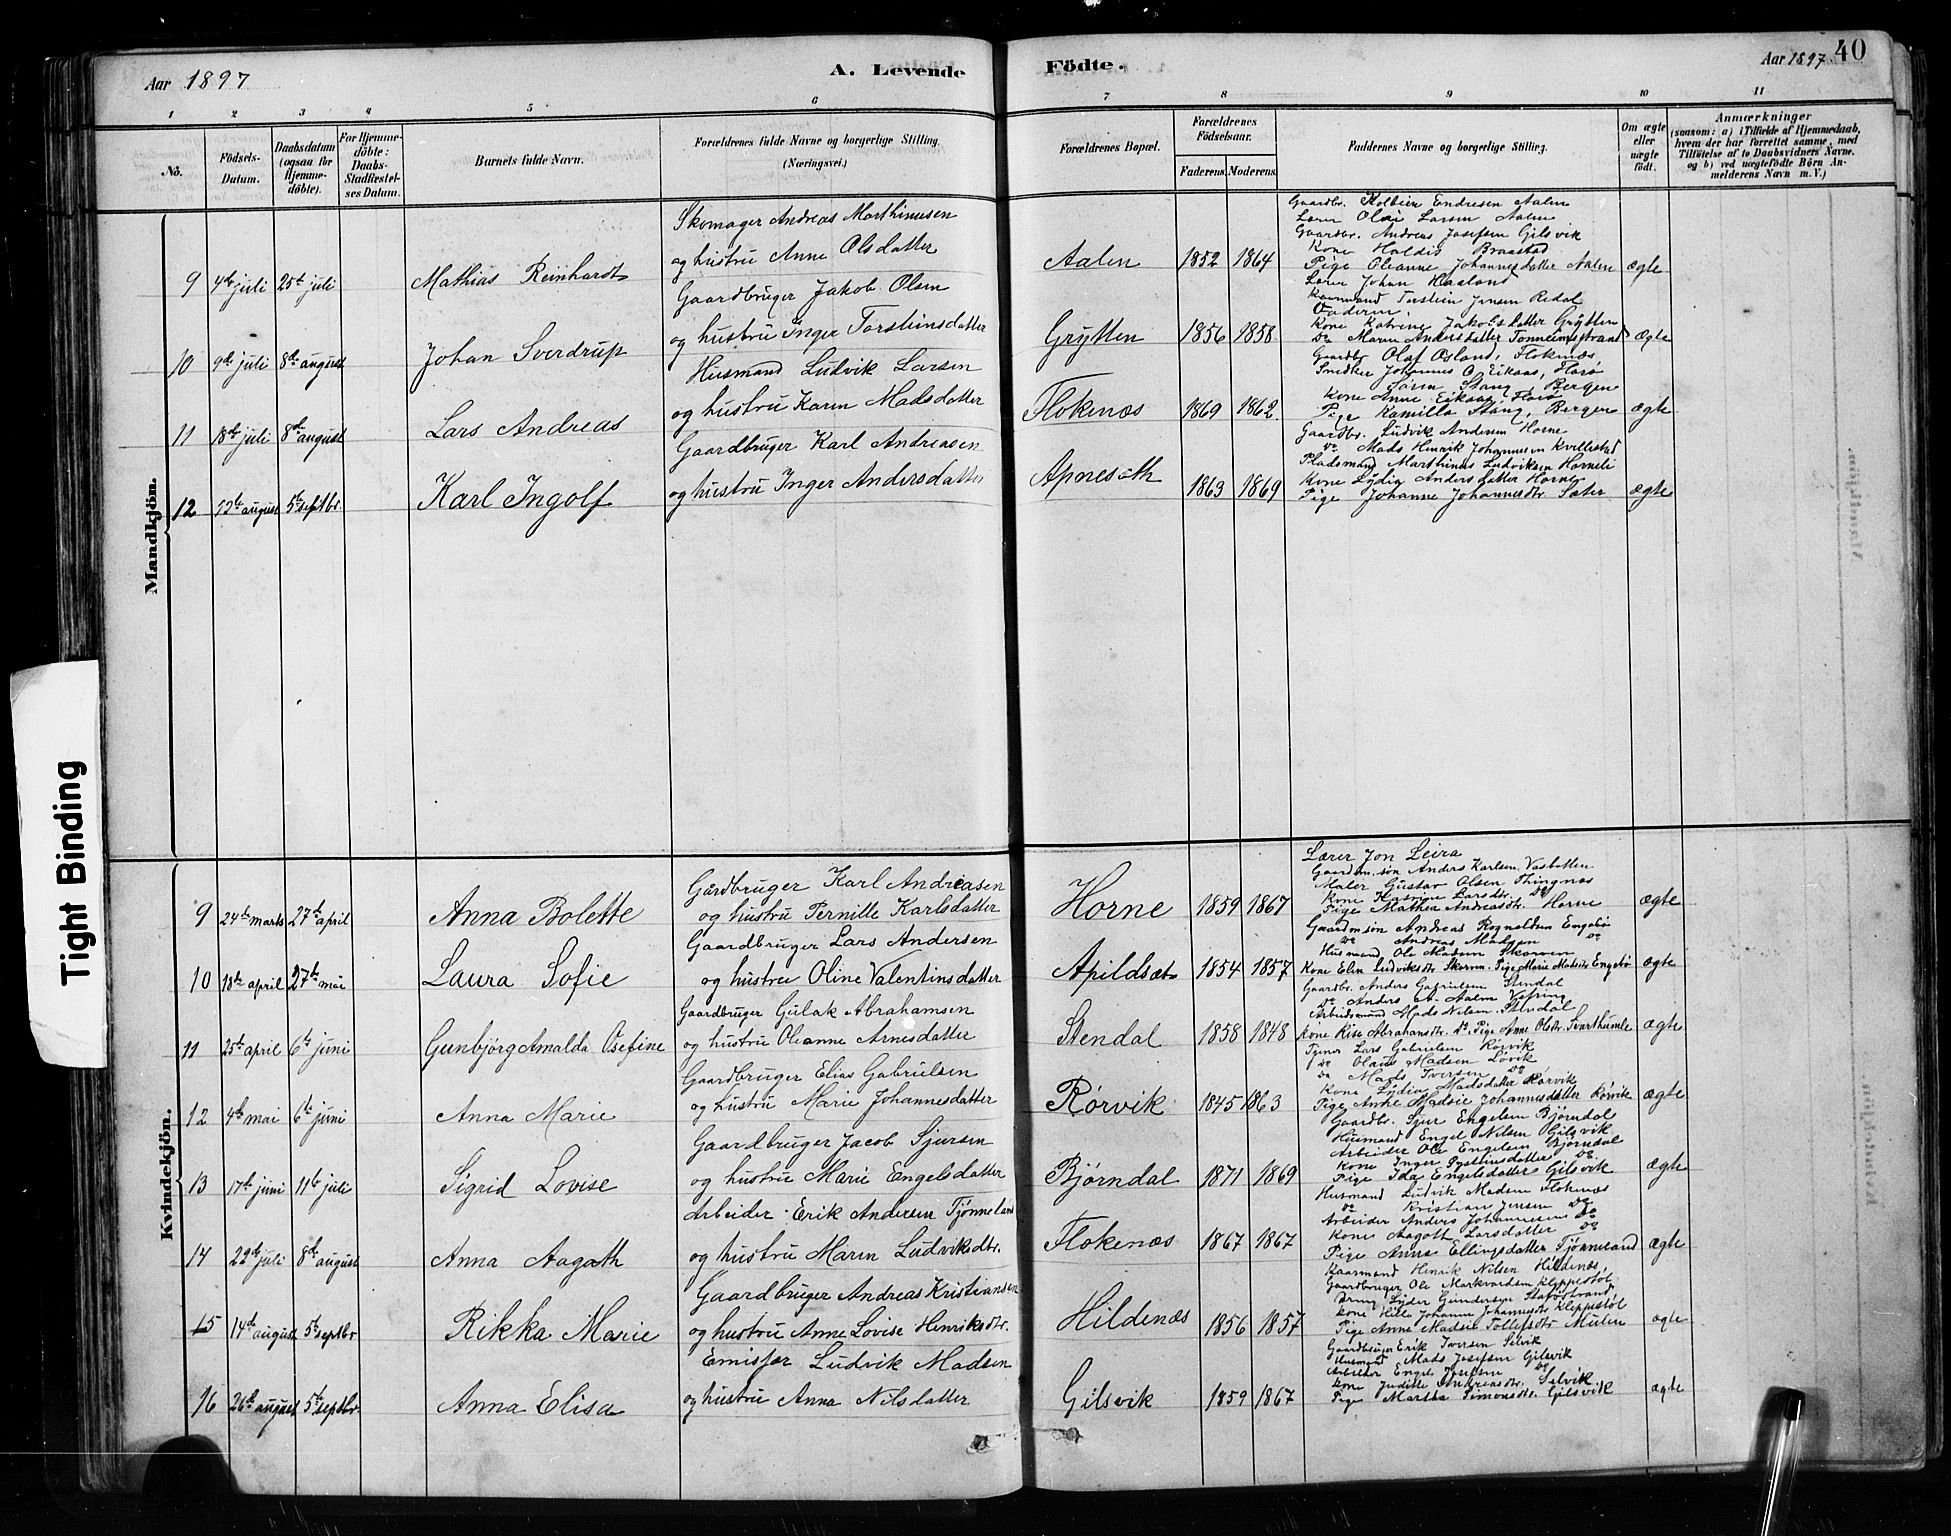 Aar 1897
A. Levende Födte.
Aar 1897 40
1 2 3 4 5 6 7 8 9 10 11
No.
Födsels-Datum.
Daabsdatum (ogsaa for Hjemmedöbte).
For Hjemmedöbte: Daabs-Stadfæstelses Datum.
Barnets fulde Navn.
Forældrenes fulde Navne og borgerlige Stilling. (Næringsvei.)
Forældrenes Bopæl.
Forældrenes Födselsaar.
Faderens. Moderens.
Faddernes Navne og borgerlige Stilling.
Om ægte eller uægte födt.
Anmærkninger (saasom: a) i Tilfælde af Hjemmedaab, hvem der har forrettet samme, med Tilföielse af to Daabsvidners Navne, og b) ved uægtefödte Börn Anmelderens Navn m. V.)
Mandkjön.
9 4de juli 25de juli Mathias Reinhardt
Skomager Andreas Marthinusen
og hustru Anne Olsdatter
Aalen 1852 1864
Gaardbr. Kolbein Endresen Aalen
Lærer Olai Larsen Aalen
Gaardbr. Andreas Josefsen Gilsvik
Kone Haldis Braastad
Pige Oleanne Johannesdatter Aalen
ægte
10 9de juli 8de august Johan Sverdrup
Gaardbruger Jakob Olsen
og hustru Inger Torsteinsdatter
Grytten 1856 1858
Lærer Johan Haaland
Kaarmand Torstein Jensen Redal
Faderen.
Kone Katrine Jakobsdatter Grytten
Do Maren Andersdatter Tonheimstrand
ægte
11 18de juli 8de august Lars Andreas
Husmand Ludvik Larsen
og hustru Karen Madsdatter
Flokenæs 1869 1862
Gaardbr Olaf Osland, Flokenæs,
Snedker Johannes O. Eikaas, Florø
Søren Stang, Bergen
Kone Anne Eikaas, Florø
Pige Kamilla Stang, Bergen
ægte
12 12te august 5te septbr. Karl Ingolf
Gaardbruger Karl Andreasen
og hustru Inger Andersdatter
Apnesæth 1863 1869
Gaardbr. Ludvik Andersen Horne
Do Mads Henrik Johannesen Kvellestad
Pladsmand Marthinus Ludviksen Horneli
Kone Lydia Andersdatter Horne
Pige Johanne Johannesdtr Sæter
ægte
Kvindekjön.
9 24de marts 27de april Anna Bolette
Gårdbruger Karl Andreasen
og hustru Pernille Karlsdatter
Horne 1859 1867
Lærer Jon Leira
Gaardm. søn Anders Karlsen
Maler Gustav Olsen Thingnæs
Kone Katrine Larsdtr. Do
Pige Mathea Andreasdtr. Horne
ægte
10 18de april 27de mai Laura Sofie
Gaardbruger Lars Andersen
og hustru Oline Valentinsdatter
Apildsæt 1854 1857
Gaardmsøn Andreas Rognaldsen Engebø
Do Andreas Madsen Do
Husmand Ole Madsen Skorven
Kone Elin Ludviksdtr Skorven. Pige Marie Madsdtr Engebø
ægte
11 25de april 6te juni Gunbjörg Amalda Osefine
Gaardbruger Gulak Abrahamsen
og hustru Oleanne Arnesdatter
Stendal 1858 1848
Gaardbr. Anders Gabrielsen Stendal
Do Anders A. Aalen Vefring
Arbeidsmand Mads Nilsen Stendal
Kone Rise Abrahamsdtr. Do. Pige Anne Olsdtr. Svarthumle
ægte
12 4de mai 6te juni Anna Marie
Gaardbruger Elias Gabrielsen
og hustru Marie Johannesdatter
Rörvik 1845 1863
Tjener Lars Gabrielsen Rörvik
Do Olaus Madsen Lövik
Do Mads Iversen Do
Kone Lydia Madsdatter Rörvik
Pige Anne Madsie Johannesdatter Rörvik
ægte
13 17de juni 11te juli Sigrid Lovise
Gaardbruger Jacob Sjursen
og hustru Marie Engelsdatter
Bjørndal 1871 1869
Gaardbr. Sjur Engelsen Bjørndal
Husmand Engel Nilsen Gilsvik
Arbeider Ole Engelsen Bjørndal
Kone Inger Do
Pige Ida Engelsdatter Gilsvik
ægte
14 22de juli 8de august Anna Aagath
Arbeider Erik Andersen Tjønneland
og hustru Maren Ludviksdtr.
Flokenæs 1867 1867
Husmand Ludvik Madsen Flokenæs
Do Kristian Jensen Do
Arbeider Anders Johannesen Do
Kone Aagoth Larsdatter Do
Pige Anna Ellingsdatter Tjønneland
ægte
15 14de august 5te septbr Rikka Marie
Gaardbruger Andreas Kristiansen
og hustru Anne Lovise Henriksdtr.
Hildenæs 1856 1857
Kaarmand Henrik Nilsen Hildenæs,
Gaardbruger Ole Markvardsen Kleppestøl
Lyder Gundersen
Kone Hilla Johanne Johannesdtr Kleppestøl
Pige Anne Madsie Tollefsdtr Mulen
ægte
16 26de august 5te septbr. Anna Elisa
Emisær Ludvik Madsen
og hustru Anna Nilsdatter
Gilsvik 1859 1867
Gaardbruger Erik Iversen Selvik
Husmand Mads Josefsen Gilsvik
Arbeider Engel Josefsen Do
Kone Judithe Andreasdtr. Selvik
Pige Martha Simonsdtr Gilsvik
ægte
Tight Binding